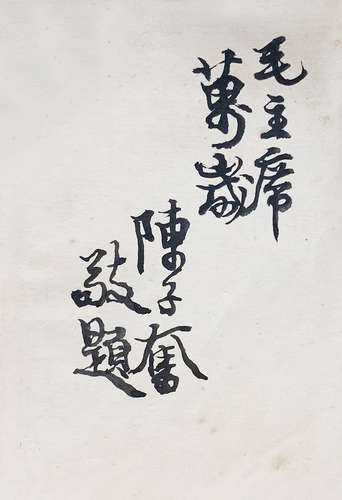 毛主席
萬歲
陳子奮
敬題